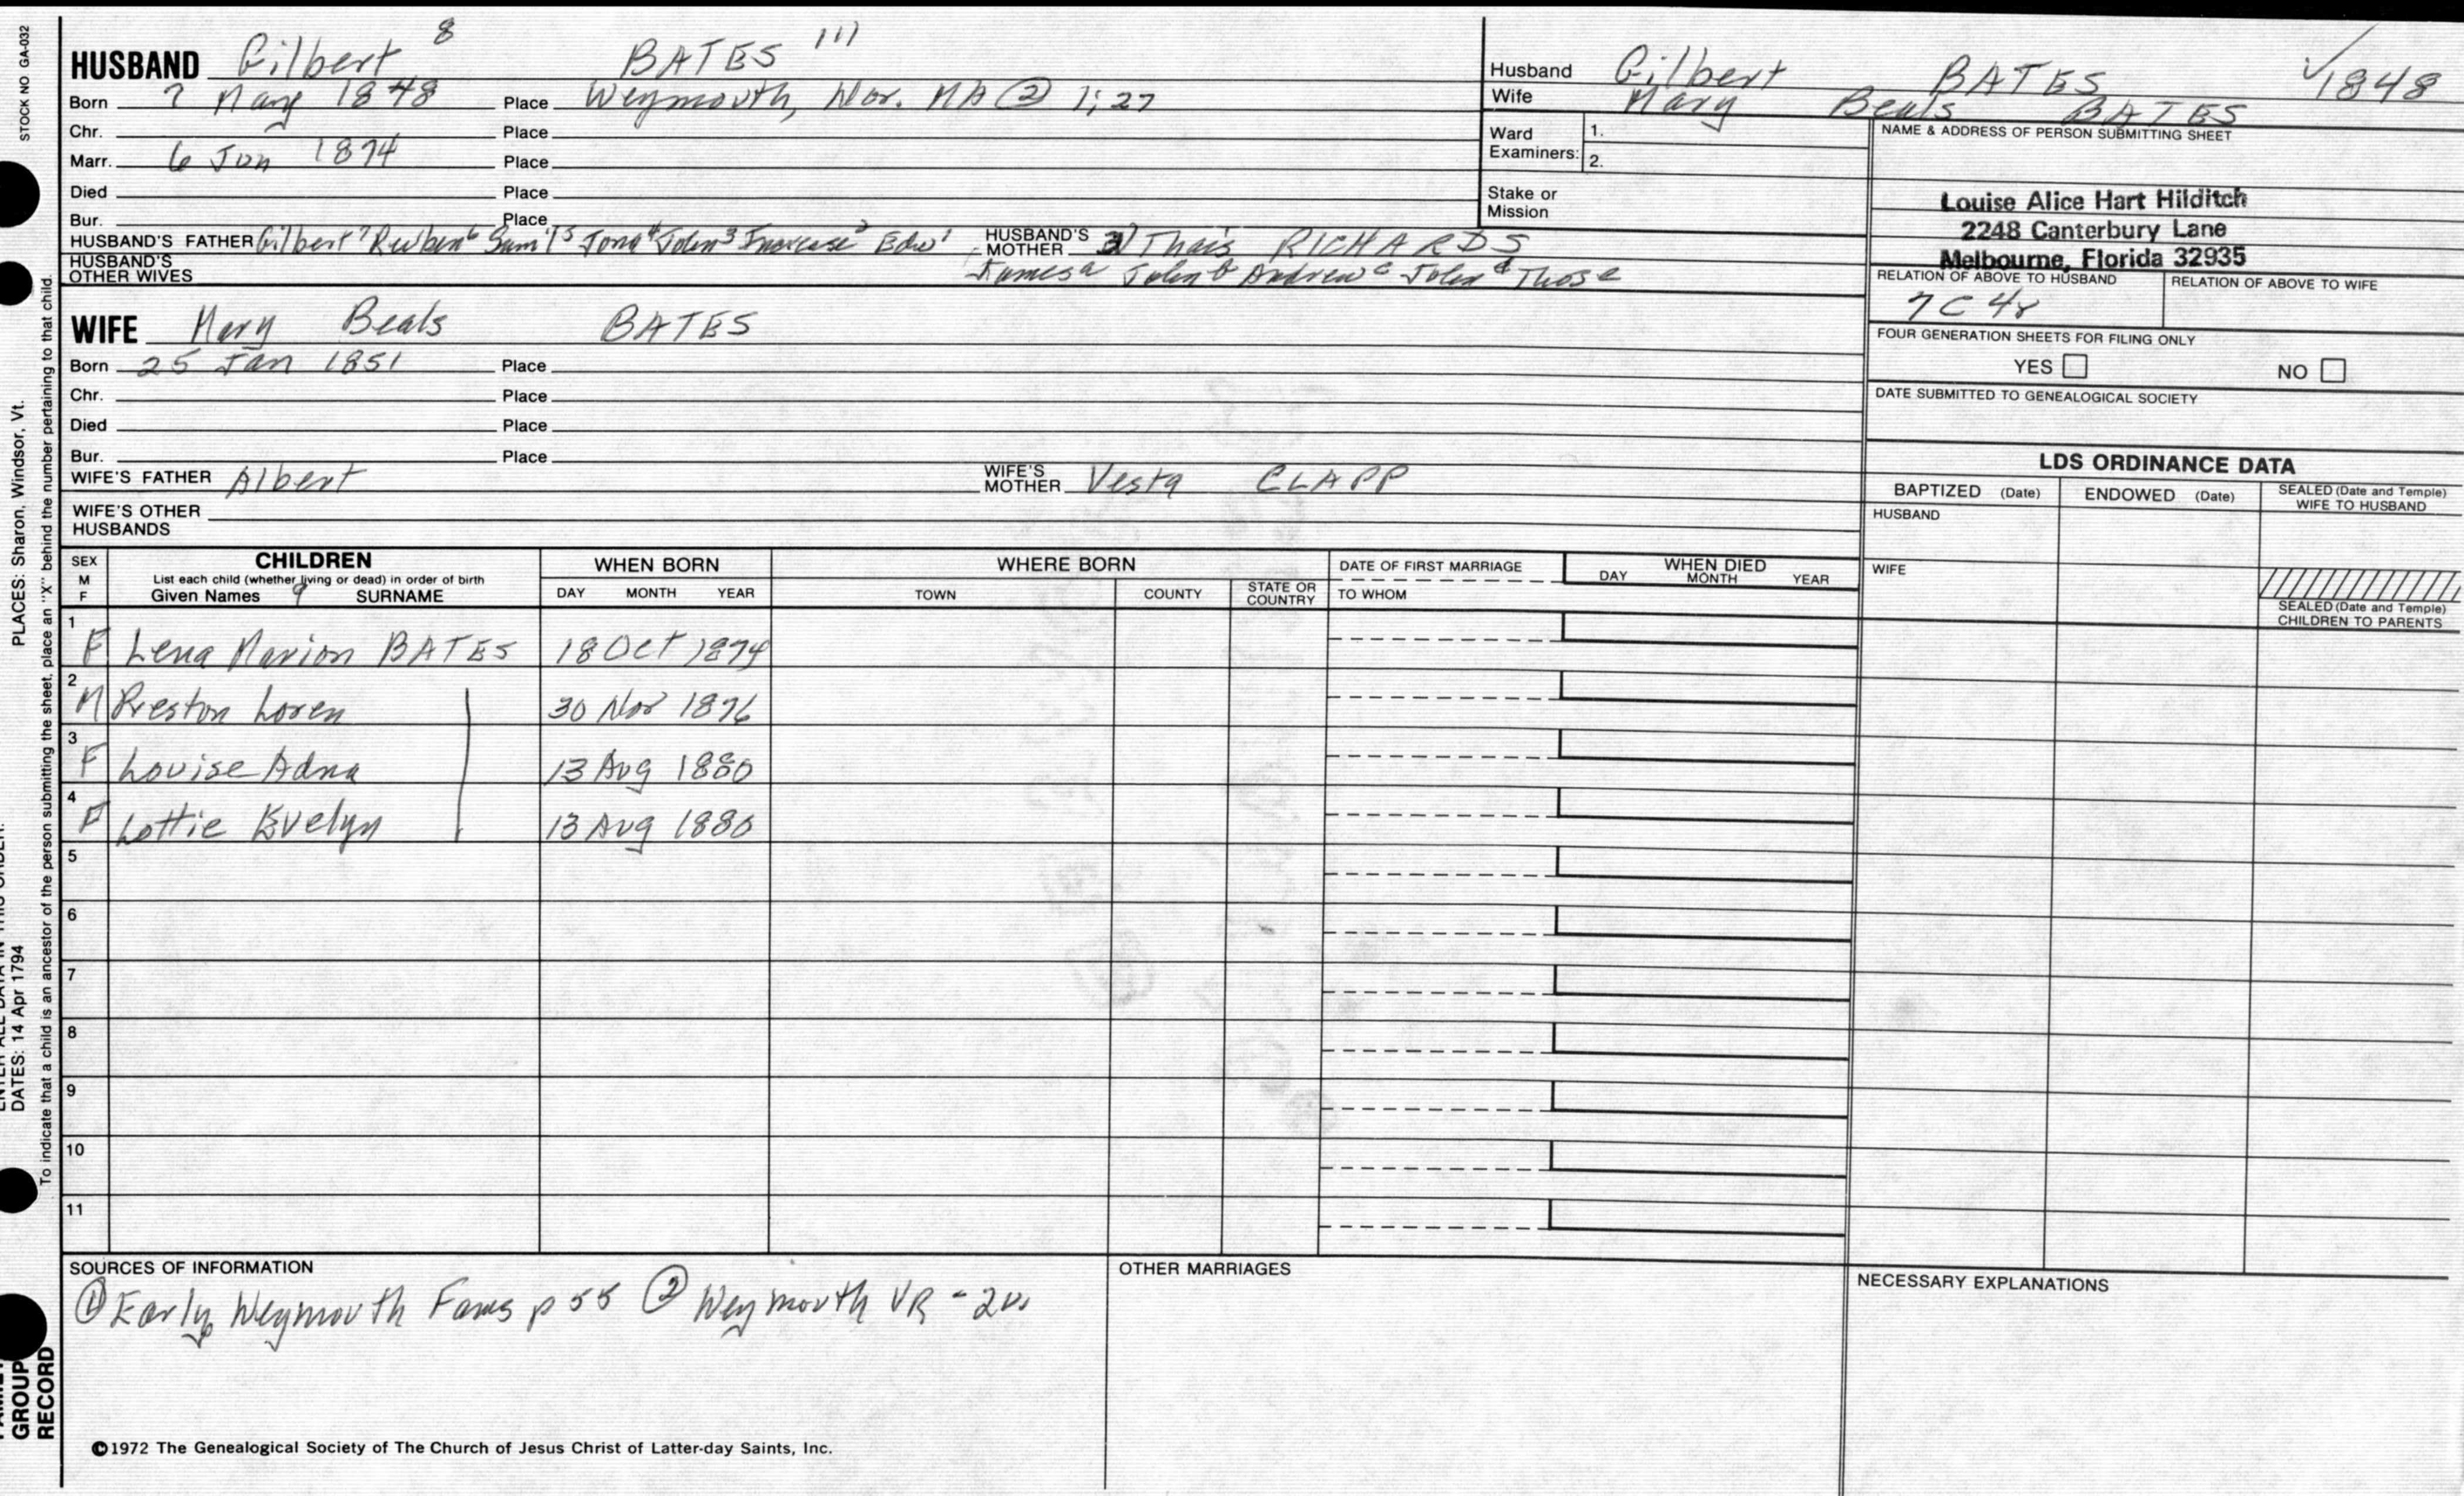 STOCK NO GA-032
PLACES: Sharon, Windsor, Vt.
DATES: 14 Apr 1794
To indicate that a child is an ancestor of the person submitting the sheet, place an "X" behind the number pertaining to that child.
GROUP
RECORD
HUSBAND Gilbert 8 BATES (1)
Born 7 May 1848 Place Weymouth, Nor. MA ② 1;27
Chr. Place
Marr. 6 Jan 1874 Place
Died Place
Bur. Place
HUSBAND'S FATHER Gilbert 7 Reuben 6 Sam'l 5 Jona 4 John 3 Increase 2 Edw 1 HUSBAND'S MOTHER Thais RICHARDS
HUSBAND'S OTHER WIVES James a John b Andrew c John d Thos e
WIFE Mary Beals BATES
Born 25 Jan 1851 Place
Chr. Place
Died Place
Bur. Place
WIFE'S FATHER Albert WIFE'S MOTHER Vesta CLAPP
WIFE'S OTHER HUSBANDS
Husband Gilbert BATES √1848
Wife Mary Beals BATES
Ward Examiners: 1.
2.
Stake or Mission
NAME & ADDRESS OF PERSON SUBMITTING SHEET
Louise Alice Hart Hilditch
2248 Canterbury Lane
Melbourne, Florida 32935
RELATION OF ABOVE TO HUSBAND RELATION OF ABOVE TO WIFE
7C 4r
FOUR GENERATION SHEETS FOR FILING ONLY
YES NO
DATE SUBMITTED TO GENEALOGICAL SOCIETY
LDS ORDINANCE DATA
BAPTIZED (Date) ENDOWED (Date) SEALED (Date and Temple) WIFE TO HUSBAND
HUSBAND
WIFE
SEALED (Date and Temple) CHILDREN TO PARENTS
SEX M F CHILDREN WHEN BORN WHERE BORN DATE OF FIRST MARRIAGE WHEN DIED
List each child (whether living or dead) in order of birth
Given Names 9 SURNAME DAY MONTH YEAR TOWN COUNTY STATE OR COUNTRY TO WHOM DAY MONTH YEAR
1 F Lena Marion BATES 18 Oct 1874
2 M Preston Loren 30 Nov 1876
3 F Louise Adna 13 Aug 1880
4 F Lottie Evelyn 13 Aug 1880
5
6
7
8
9
10
11
SOURCES OF INFORMATION
① Early Weymouth Fams p 55 ② Weymouth VR -
OTHER MARRIAGES
NECESSARY EXPLANATIONS
©1972 The Genealogical Society of The Church of Jesus Christ of Latter-day Saints, Inc.